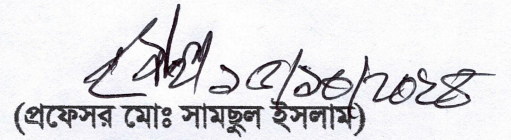 ১৫/১০/২০২৪
(প্রফেসর মোঃ সামছুল ইসলাম)